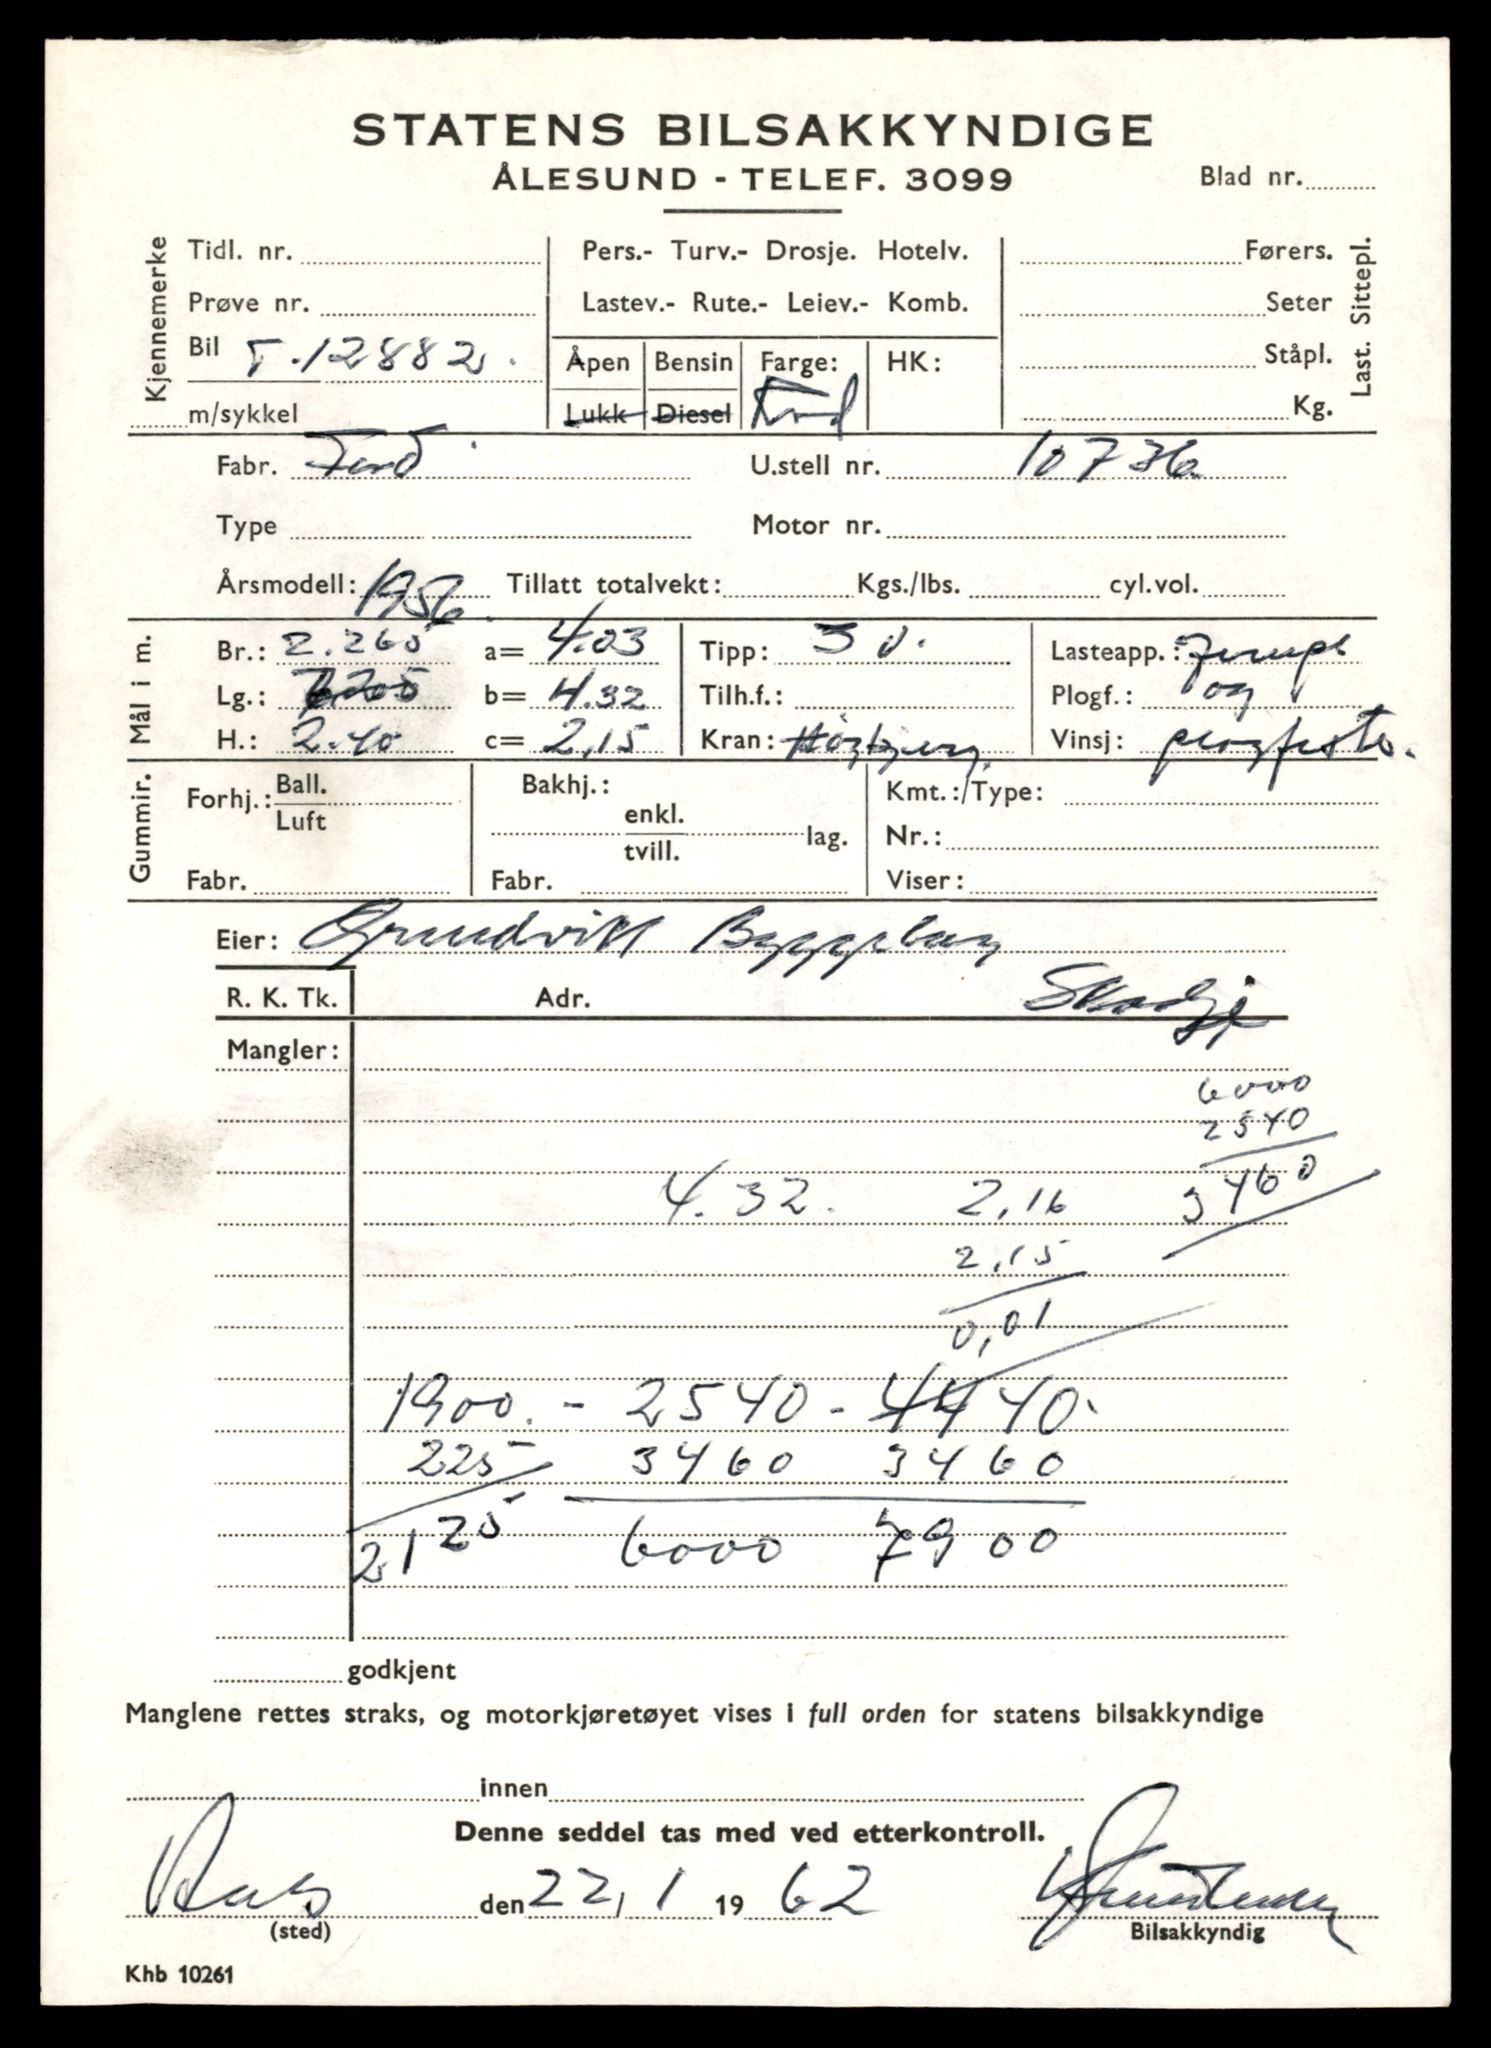 STATENS BILSAKKYNDIGE
ÅLESUND - TELEF. 3099
Blad nr.
Kjennemerke
Tidl. nr.
Prøve nr.
Bil T.12882.
m/sykkel
Pers.- Turv.- Drosje. Hotelv.
Lastev.- Rute.- Leiev.- Komb.
Åpen Bensin Farge: HK:
Lukk Diesel
Førers.
Seter
Ståpl.
Kg.
Last. Sittepl.
Fabr. Ford U.stell nr. 10736
Type Motor nr.
Årsmodell: 1956 Tillatt totalvekt: Kgs./lbs. cyl.vol.
Mål i m.
Br.: 2.265 a= 4.03 Tipp: Lasteapp.:
Lg.: 7.205 b= 4.32 Tilh.f.: Plogf.: og
H.: 2.40 c= 2,15 Kran: Vinsj: plogfeste.
Gummir.
Forhj.: Ball. Luft
Fabr.
Bakhj.: enkl. tvill. lag.
Fabr.
Kmt.:/Type:
Nr.:
Viser:
Eier: Grundvitt Byggelag
R. K. Tk. Adr. Skodje
Mangler:
6000
2540
3460
4.32. 2,16
2,15
0,01
1900. - 2540 - 4440.
225 3460 3460
2125 6000 7900
godkjent
Manglene rettes straks, og motorkjøretøyet vises i full orden for statens bilsakkyndige
innen
Denne seddel tas med ved etterkontroll.
den 22/1 19 62
(sted) Bilsakkyndig
Khb 10261